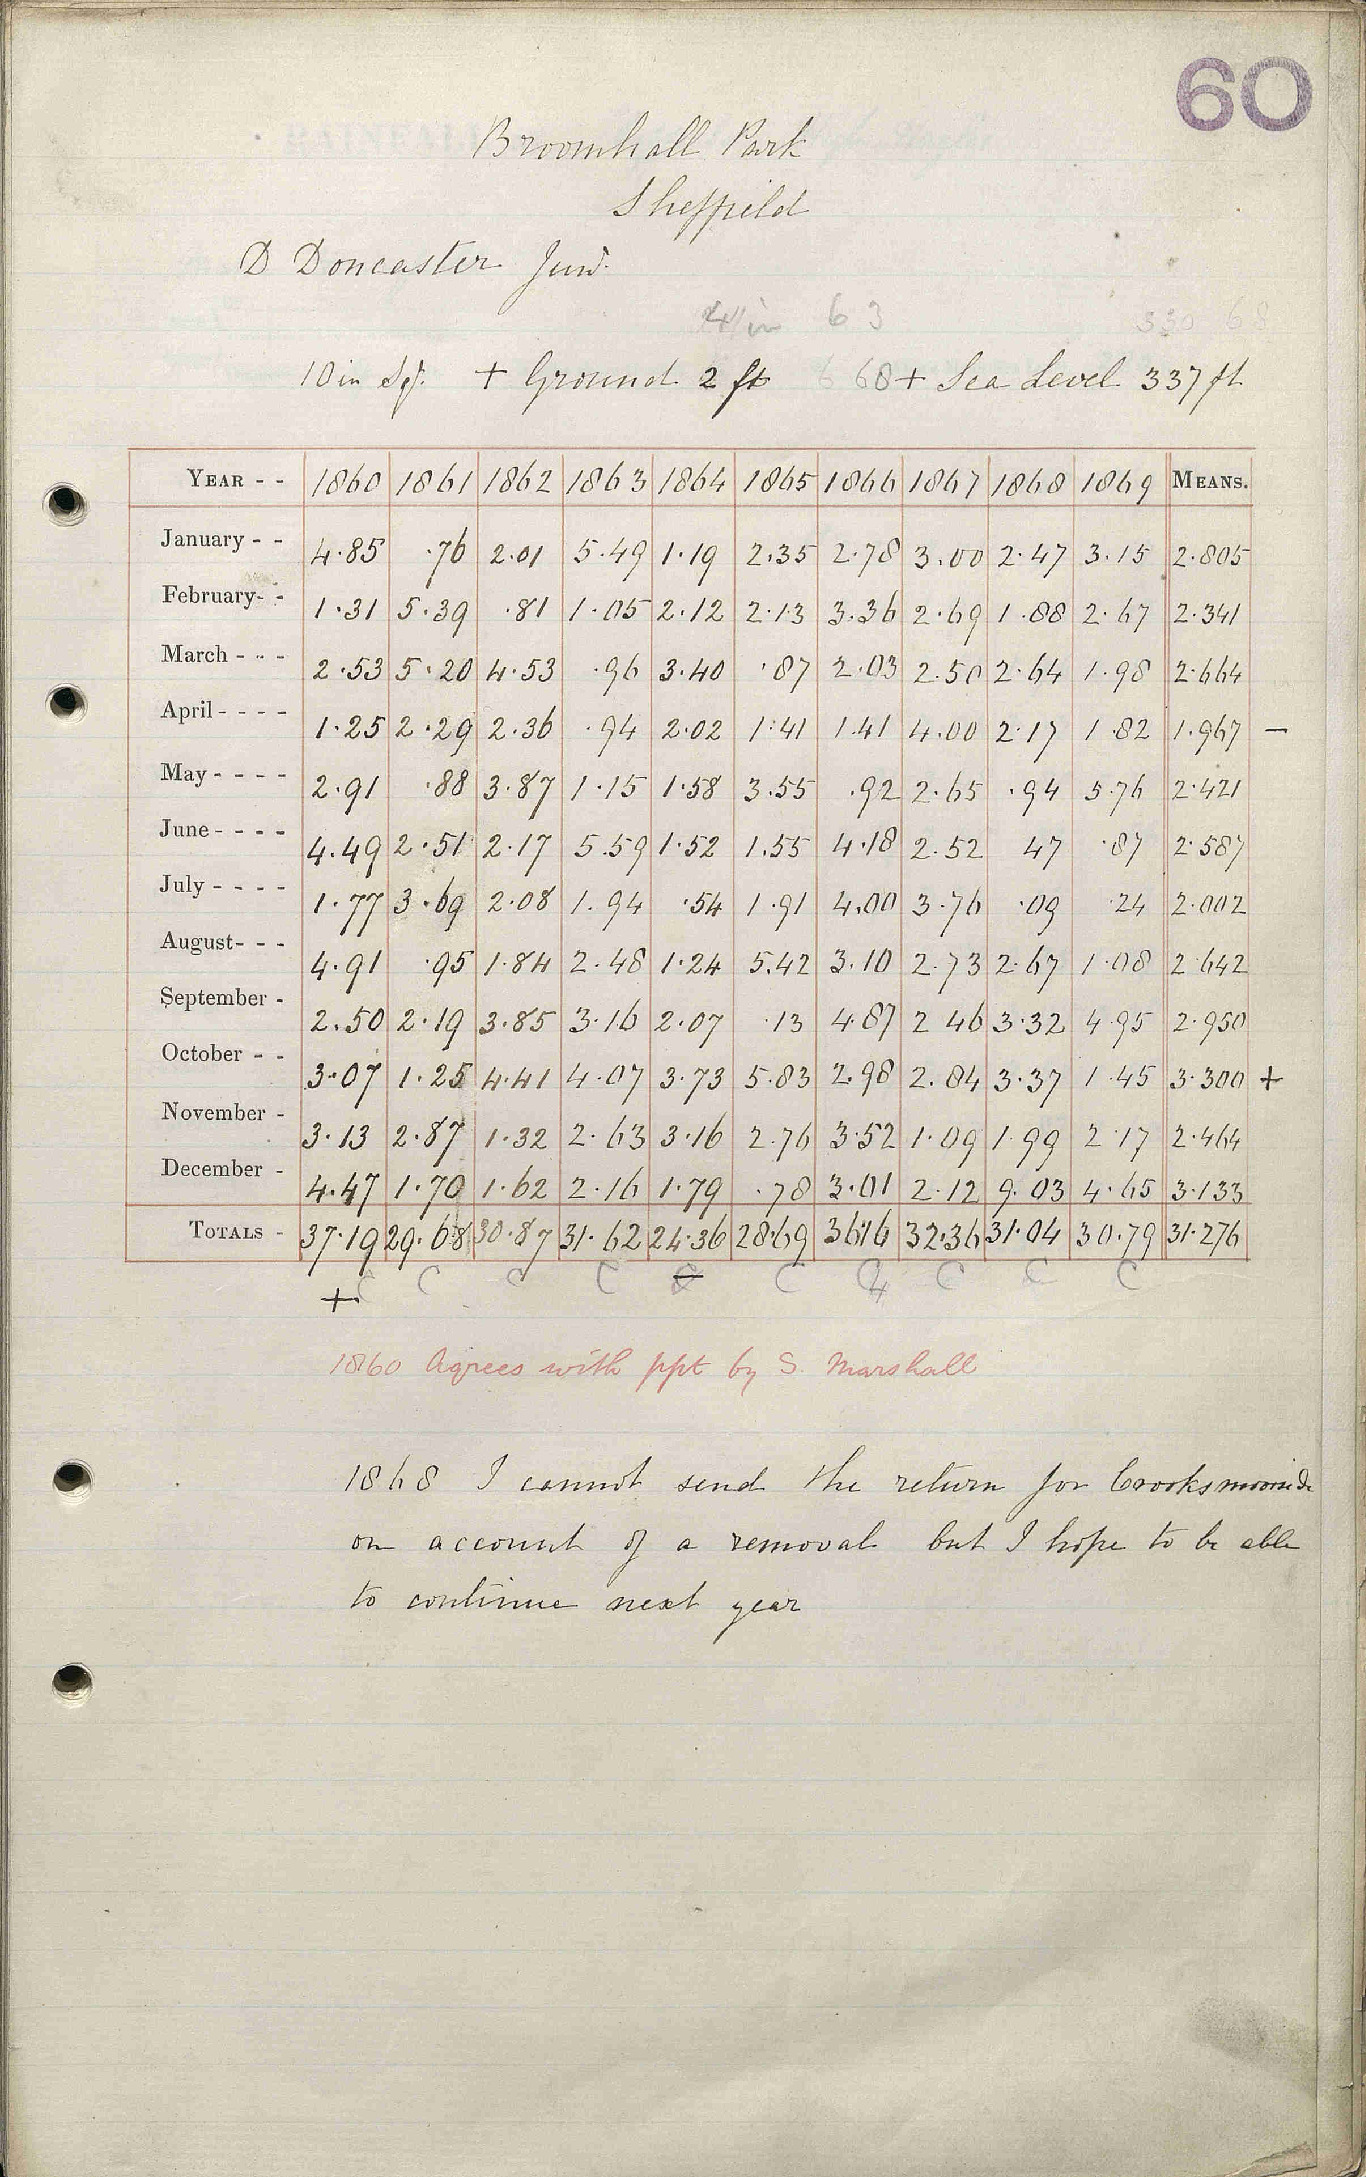 60
Broomhall Park
Sheffield
D Doncaster Junr.
4/in 63 330 68
10 in Sq. + Ground 2 ft 6 68 + Sea Level 337 ft
YEAR - - 1860 1861 1862 1863 1864 1865 1866 1867 1868 1869 MEANS.
January - - 4.85 .76 2.01 5.49 1.19 2.35 2.78 3.00 2.47 3.15 2.805
February- - 1.31 5.39 .81 1.05 2.12 2.13 3.36 2.69 1.88 2.67 2.341
March - - - 2.53 5.20 4.53 .96 3.40 .87 2.03 2.50 2.64 1.98 2.664
April - - - - 1.25 2.29 2.36 .94 2.02 1.41 1.41 4.00 2.17 1.82 1.967 —
May - - - - 2.91 .88 3.87 1.15 1.58 3.55 .92 2.65 .94 5.76 2.421
June - - - - 4.49 2.51 2.17 5.59 1.52 1.55 4.18 2.52 47 .87 2.587
July - - - - 1.77 3.69 2.08 1.94 .54 1.91 4.00 3.76 .09 .24 2.002
August- - - 4.91 .95 1.84 2.48 1.24 5.42 3.10 2.73 2.67 1.08 2.642
September - 2.50 2.19 3.85 3.16 2.07 .13 4.87 2 46 3.32 4.95 2.950
October - - 3.07 1.25 4.41 4.07 3.73 5.83 2.98 2.84 3.37 1.45 3.300 +
November - 3.13 2.87 1.32 2.63 3.16 2.76 3.52 1.09 1.99 2.17 2.464
December - 4.47 1.70 1.62 2.16 1.79 .78 3.01 2.12 9.03 4.65 3.133
TOTALS - 37.19 29.68 30.87 31.62 24.36 28.69 36.16 32.36 31.04 30.79 31.276
C C C C C C C C C
+ —
1860 Agrees with ppt by S. Marshall
1868 I cannot send the return for Crooksmoorside
on account of a removal but I hope to be able
to continue next year